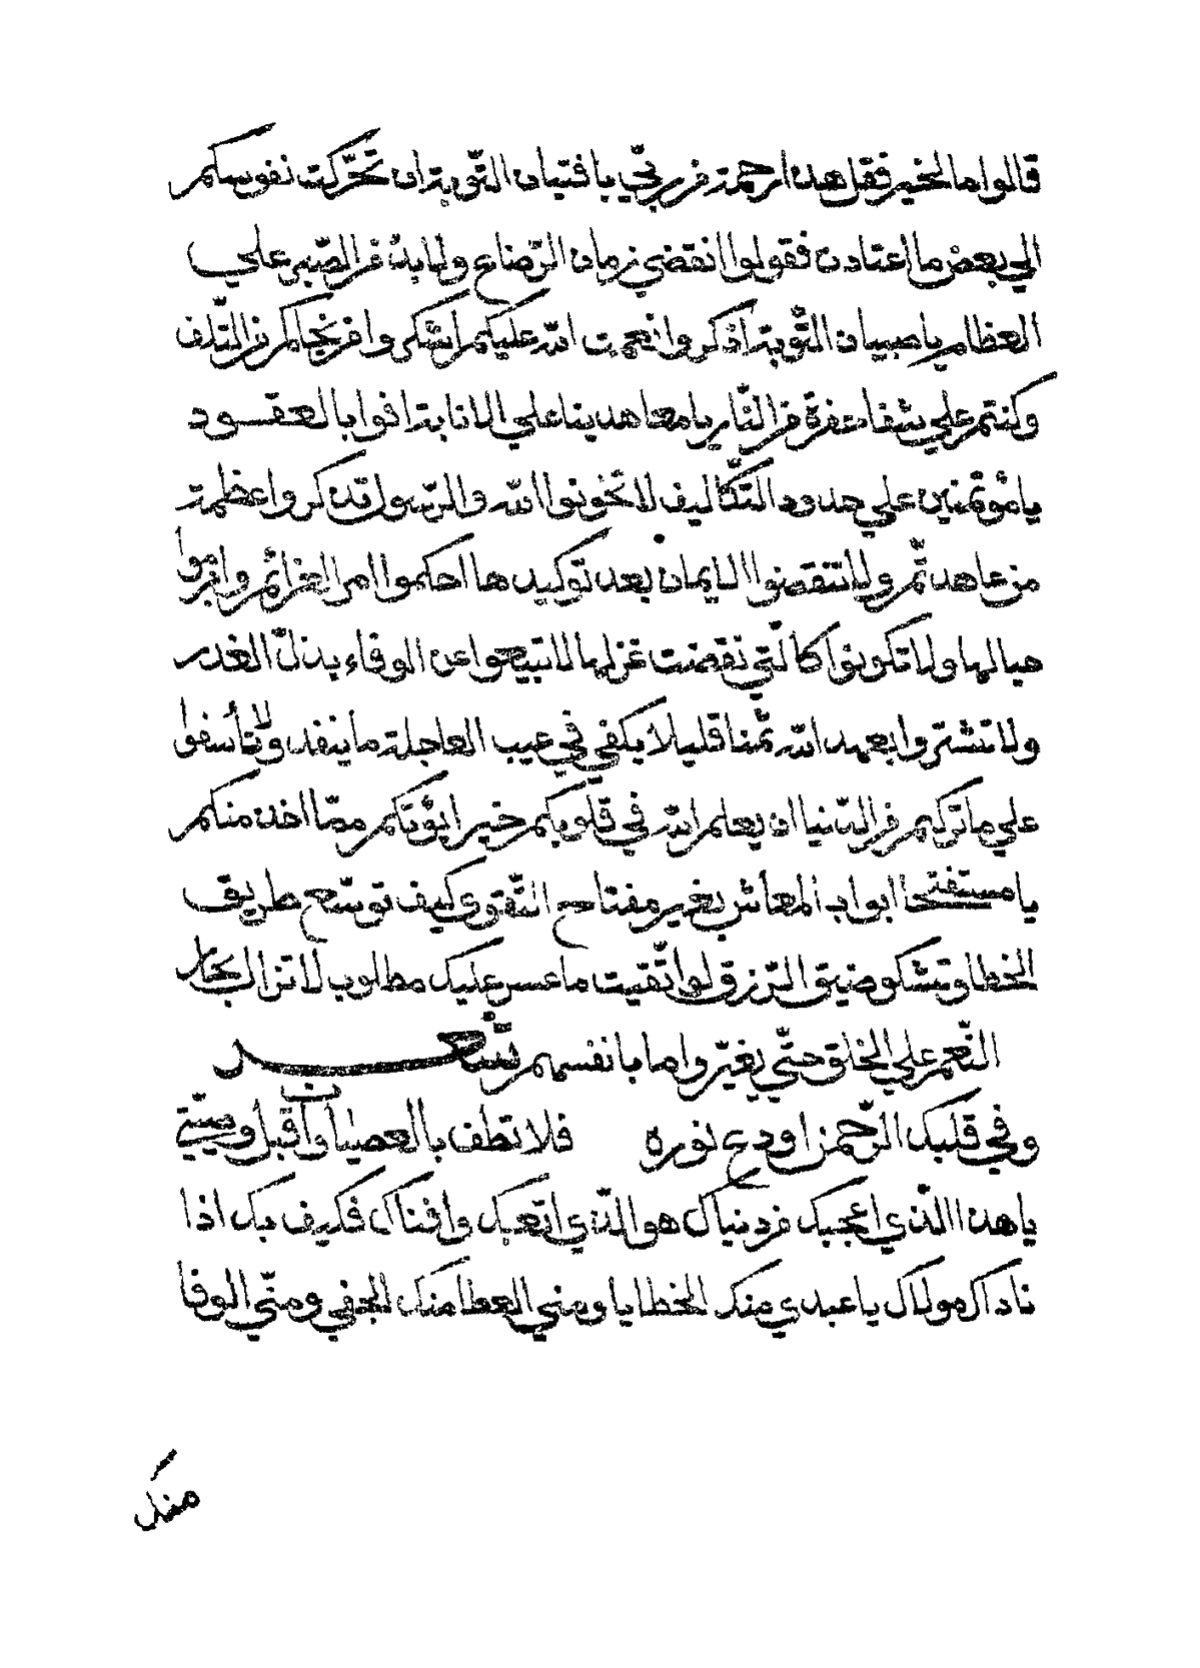 قالوا ما الخير فقل هذا رحمة من ربّي يا فتيان التّوبة ان تحرّكت نفوسكم
الي بعض ما اعتادت فقولوا انقضي زمان الرّضاع ولا بدّ من الصّبر علي
العظام يا صبيان التّوبة اذكروا نعمت الله عليكم أشكروا من نجاكم من التّلف
وكنتم علي شفا حفرة من النّار يا معاهدينا علي الانابة افوا بالعقود
يا مؤتمنين علي حدود التّكاليف لا تخونوا الله والرّسول تذكروا عظمة
من عاهدتّم ولا تنقضوا الايمان بعد توكيدها احكموا امر العزائم وابرموا
حبالها ولا تكونوا كالّتي نقضت غزلها لا تبيحوا عن الوفاء بذلّ الغدر
ولا تشتروا بعهد الله ثمنا قليلا يكفي في عيب العاجلة ما ينفد ولا تأسفوا
علي ما تركتم من الدّنيا ان يعلم الله في قلوبكم خيرا يؤتكم ممّا اخذ منكم
يا مستفتحا ابواب المعاش بغير مفتاح التّقوي كيف توسّع طريق
الخطا وتشكو ضيق الرّزق لو اتّقيت ما عسر عليك مطلوب لا تزال بحار
النّعم علي الخلق حتّي يغيّروا ما بانفسهم شعر
وفي قلبك الرّحمن اودع نوره فلا تطف بالعصيان وأقبل وصيّتي
يا هذا الّذي اعجبك من دنياك هو الّذي اتعبك وافناك فكيف بك اذا
ناداك مولاك يا عبدي منك الخطايا ومني العطا منك الجفي ومنّي الوفا
منك